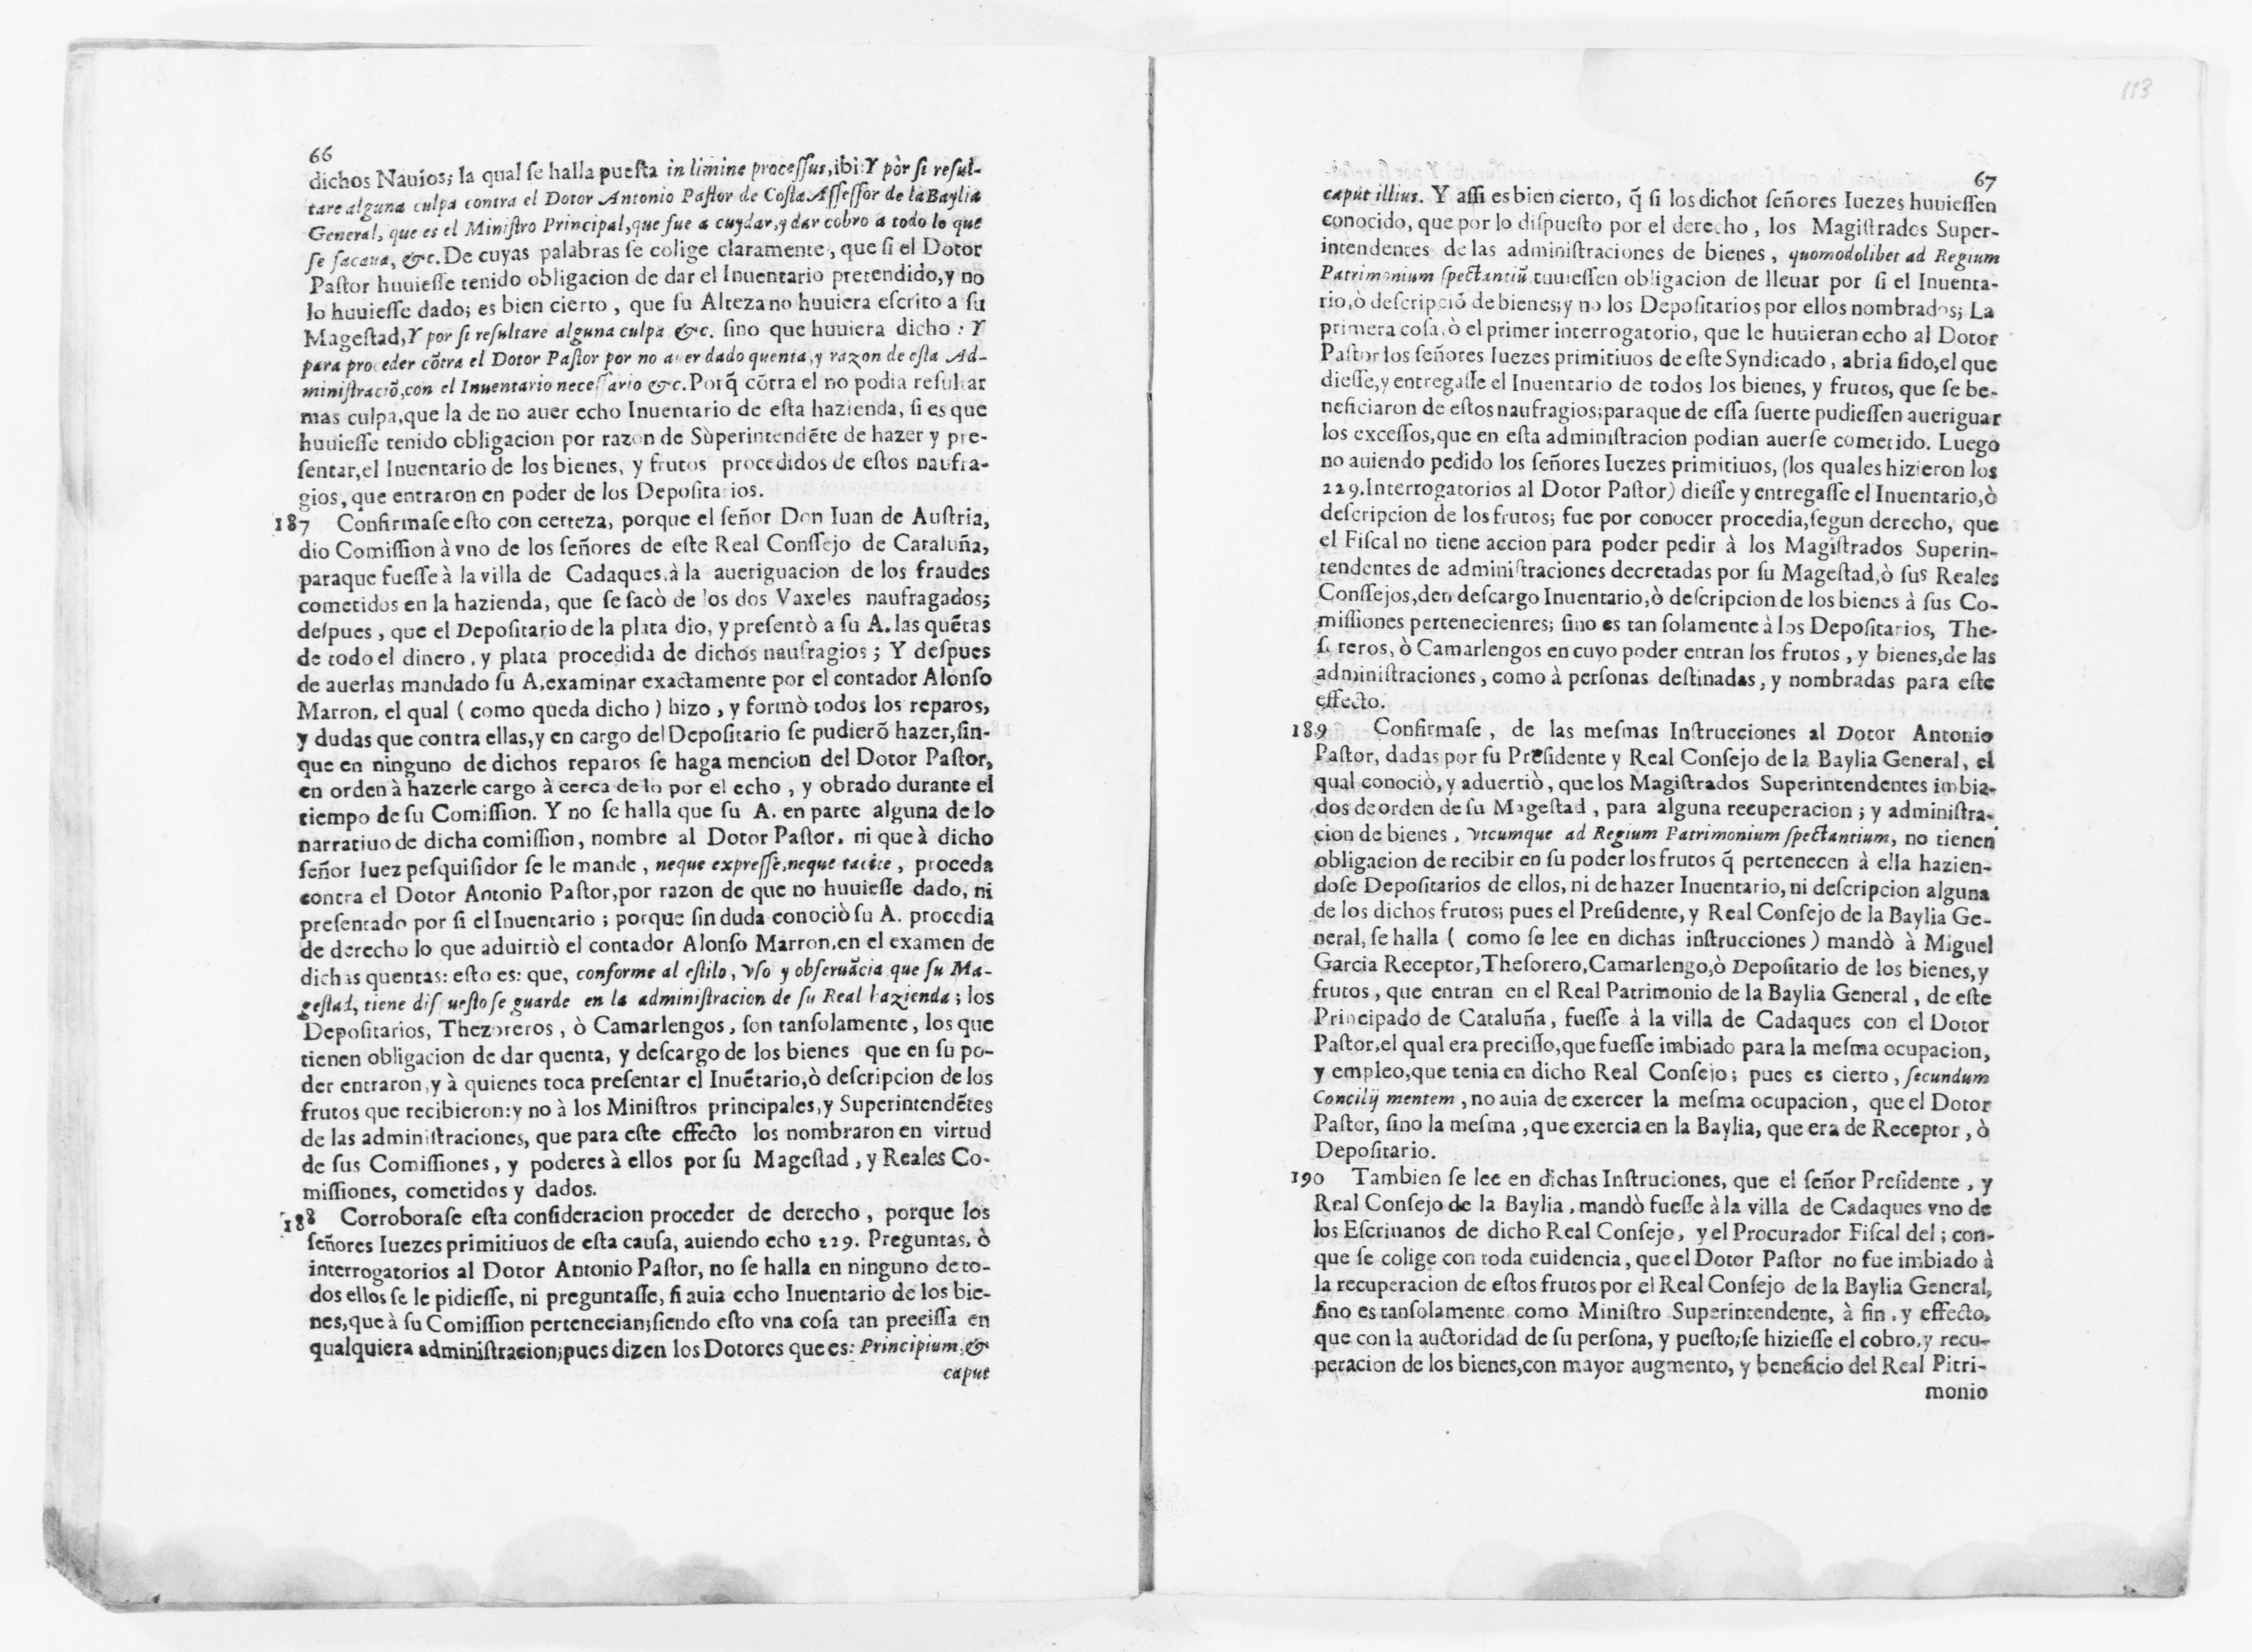 66
dichos Nauios; la qual se halla puesta in limine processus, ibi: Y pòr si resul-
tare alguna culpa contra el Dotor Antonio Pastor de Costa Assessor de la Baylia
General, que es el Ministro Principal, que fue a cuydar, y dar cobro a todo lo que
se sacaua, &c. De cuyas palabras se colige claramente, que si el Dotor
Pastor huuiesse tenido obligacion de dar el Inuentario pretendido, y no
lo huuiesse dado; es bien cierto, que su Alteza no huuiera escrito a su
Magestad, Y por si resultare alguna culpa &c. sino que huuiera dicho: Y
para proceder cõtra el Dotor Pastor por no auer dado quenta, y razon de esta Ad-
ministraciõ, con el Inuentario necessario &c. Porq̃ cõtra el no podia resultar
mas culpa, que la de no auer echo Inuentario de esta hazienda, si es que
huuiesse tenido obligacion por razon de Sùperintendẽte de hazer y pre-
sentar, el Inuentario de los bienes, y frutos procedidos de estos naufra-
gios, que entraron en poder de los Depositarios.
187 Confirmase esto con certeza, porque el señor Don Iuan de Austria,
dio Comission à vno de los señores de este Real Conssejo de Cataluña,
paraque fuesse à la villa de Cadaques, à la aueriguacion de los fraudes
cometidos en la hazienda, que se sacò de los dos Vaxeles naufragados;
despues, que el Depositario de la plata dio, y presentò a su A. las quẽtas
de todo el dinero, y plata procedida de dichos naufragios; Y despues
de auerlas mandado su A, examinar exactamente por el contador Alonso
Marron, el qual ( como queda dicho ) hizo, y formò todos los reparos,
y dudas que contra ellas, y en cargo del Depositario se pudierõ hazer, sin-
que en ninguno de dichos reparos se haga mencion del Dotor Pastor,
en orden à hazerle cargo à cerca de lo por el echo, y obrado durante el
tiempo de su Comission. Y no se halla que su A. en parte alguna de lo
narratiuo de dicha comission, nombre al Dotor Pastor, ni que à dicho
señor Iuez pesquisidor se le mande, neque expressè, neque tacite, proceda
contra el Dotor Antonio Pastor, por razon de que no huuiesse dado, ni
presentado por si el Inuentario; porque sin duda conociò su A. procedia
de derecho lo que aduirtiò el contador Alonso Marron, en el examen de
dichas quentas: esto es: que, conforme al estilo, vso y obseruãcia que su Ma-
gestad, tiene dis uesto se guarde en la administracion de su Real hazienda; los
Depositarios, Thezoreros, ò Camarlengos, son tansolamente, los que
tienen obligacion de dar quenta, y descargo de los bienes que en su po-
der entraron, y à quienes toca presentar el Inuẽtario, ò descripcion de los
frutos que recibieron: y no à los Ministros principales, y Superintendẽtes
de las administraciones, que para este effecto los nombraron en virtud
de sus Comissiones, y poderes à ellos por su Magestad, y Reales Co-
missiones, cometidos y dados.
188 Corroborase esta consideracion proceder de derecho, porque los
señores Iuezes primitiuos de esta causa, auiendo echo 229. Preguntas, ò
interrogatorios al Dotor Antonio Pastor, no se halla en ninguno de to-
dos ellos se le pidiesse, ni preguntasse, si auia echo Inuentario de los bie-
nes, que à su Comission pertenecian; siendo esto vna cosa tan precissa en
qualquiera administracion; pues dizen los Dotores que es: Principium, &
caput
67
capùt illius. Y assi es bien cierto, q̃ si los dichot señores Iuezes huuiessen
conocido, que por lo dispuesto por el derecho, los Magistrados Super-
intendentes de las administraciones de bienes, quomodolibet ad Regium
Patrimonium spectantiũ tuuiessen obligacion de lleuar por si el Inuenta-
rio, ò descripciõ de bienes; y no los Depositarios por ellos nombrados; La
primera cosa, ò el primer interrogatorio, que le huuieran echo al Dotor
Pastor los señores Iuezes primitiuos de este Syndicado, abria sido, el que
diesse, y entregasse el Inuentario de todos los bienes, y frutos, que se be-
neficiaron de estos naufragios; paraque de essa suerte pudiessen aueriguar
los excessos, que en esta administracion podian auerse cometido. Luego
no auiendo pedido los señores Iuezes primitiuos, (los quales hizieron los
229. Interrogatorios al Dotor Pastor) diesse y entregasse el Inuentario, ò
descripcion de los frutos; fue por conocer procedia, segun derecho, que
el Fiscal no tiene accion para poder pedir à los Magistrados Superin-
tendentes de administraciones decretadas por su Magestad, ò sus Reales
Conssejos, den descargo Inuentario, ò descripcion de los bienes à sus Co-
missiones pertenecientes; sino es tan solamente à los Depositarios, The-
soreros, ò Camarlengos en cuyo poder entran los frutos, y bienes, de las
administraciones, como à personas destinadas, y nombradas para este
effecto.
189 Confirmase, de las mesmas Instrucciones al Dotor Antonio
Pastor, dadas por su Presidente y Real Consejo de la Baylia General, el
qual conociò, y aduertiò, que los Magistrados Superintendentes imbia-
dos de orden de su Magestad, para alguna recuperacion; y administra-
cion de bienes, vtcumque ad Regium Patrimonium spectantium, no tienen
obligacion de recibir en su poder los frutos q̃ pertenecen à ella hazien-
dose Depositarios de ellos, ni de hazer Inuentario, ni descripcion alguna
de los dichos frutos; pues el Presidente, y Real Consejo de la Baylia Ge-
neral, se halla ( como se lee en dichas instrucciones ) mandò à Miguel
Garcia Receptor, Thesorero, Camarlengo, ò Depositario de los bienes, y
frutos, que entran en el Real Patrimonio de la Baylia General, de este
Principado de Cataluña, fuesse à la villa de Cadaques con el Dotor
Pastor, el qual era precisso, que fuesse imbiado para la mesma ocupacion,
y empleo, que tenia en dicho Real Consejo; pues es cierto, secundum
Concilij mentem, no auia de exercer la mesma ocupacion, que el Dotor
Pastor, sino la mesma, que exercia en la Baylia, que era de Receptor, ò
Depositario.
190 Tambien se lee en dichas Instruciones, que el señor Presidente, y
Real Consejo de la Baylia, mandò fuesse à la villa de Cadaques vno de
los Escriuanos de dicho Real Consejo, y el Procurador Fiscal del; con-
que se colige con toda euidencia, que el Dotor Pastor no fue imbiado à
la recuperacion de estos frutos por el Real Consejo de la Baylia General,
sino es tansolamente como Ministro Superintendente, à fin, y effecto,
que con la auctoridad de su persona, y puesto; se hiziesse el cobro, y recu-
peracion de los bienes, con mayor augmento, y beneficio del Real Pitri-
monio
113